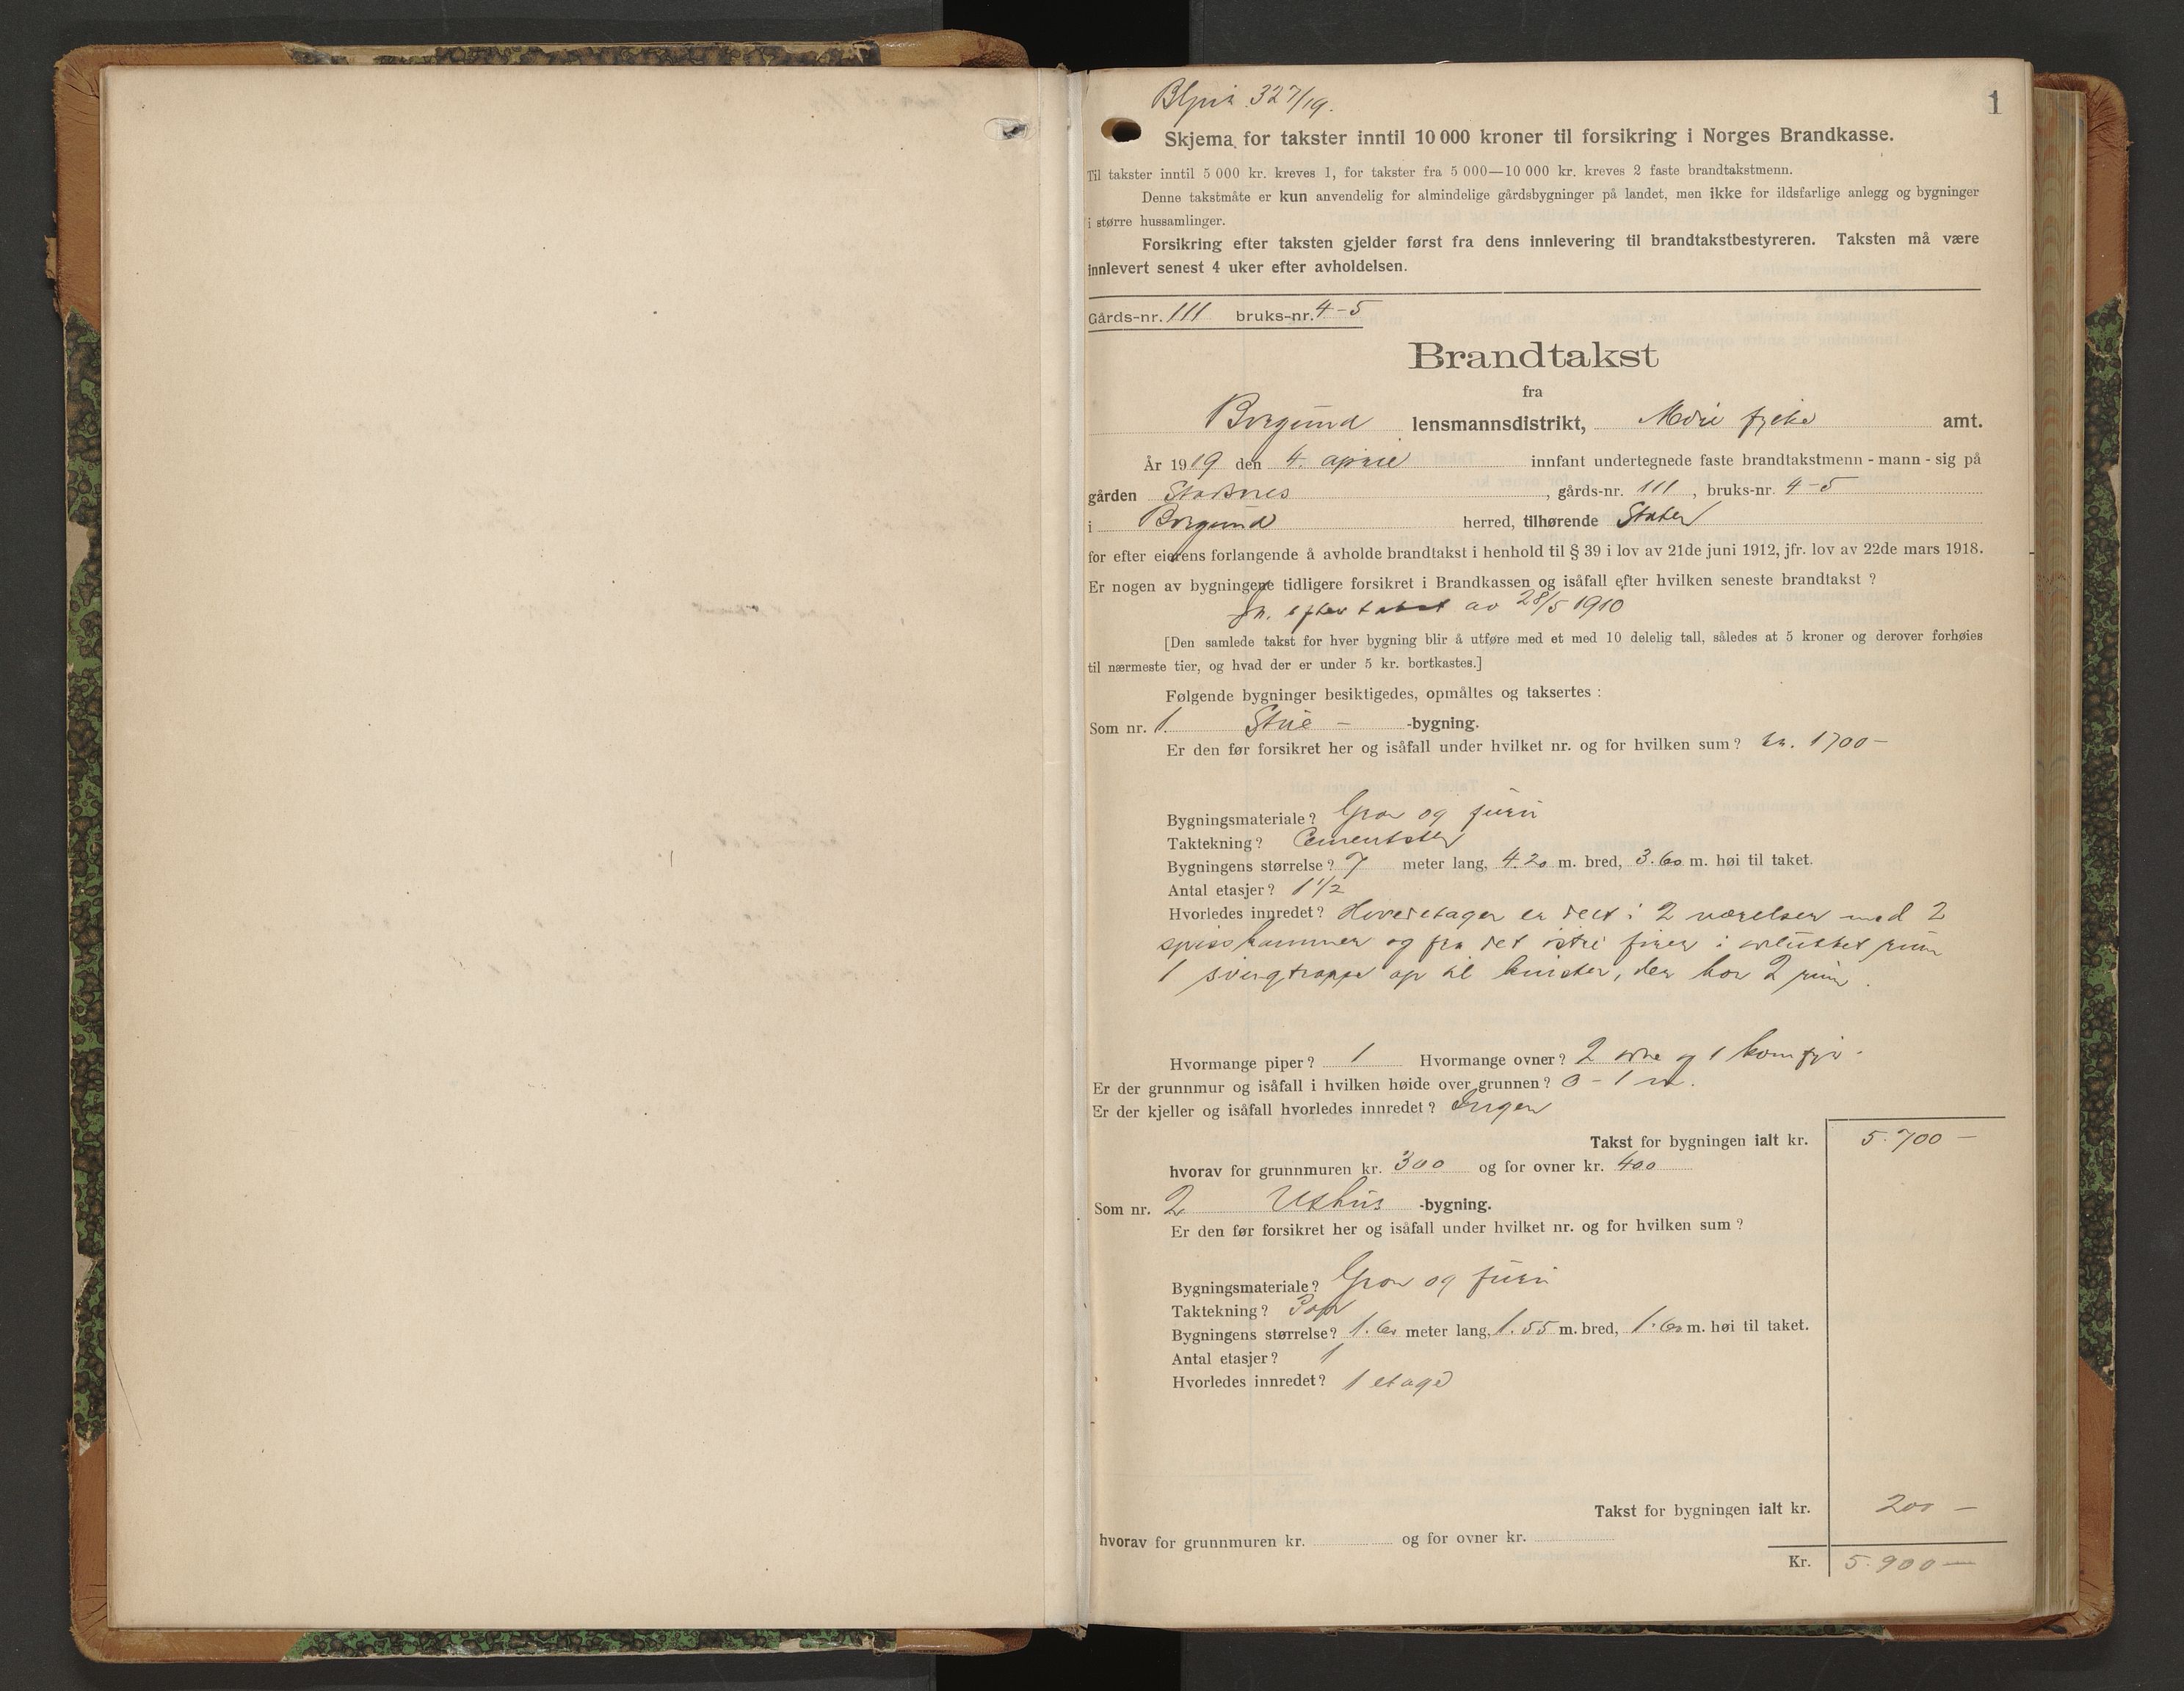 327/19.
1
Skjema for takster inntil 10 000 kroner til forsikring i Norges Brandkasse.
Til takster inntil 5 000 kr. kreves 1, for takster fra 5 000—10 000 kr. kreves 2 faste brandtakstmenn.
Denne takstmåte er kun anvendelig for almindelige gårdsbygninger på landet, men ikke for ildsfarlige anlegg og bygninger
i større hussamlinger.
Forsikring efter taksten gjelder først fra dens innlevering til brandtakstbestyreren. Taksten må være
innlevert senest 4 uker efter avholdelsen.
Gårds-nr. 111 bruks-nr. 4-5
Brandtakst
fra
Borgund lensmannsdistrikt, Møre fylke amt.
År 1919 den 4. april innfant undertegnede faste brandtakstmenn - mann - sig på
gården , gårds-nr. 111, bruks-nr. 4-5
i Borgund herred, tilhørende Staten
for efter eierens forlangende å avholde brandtakst i henhold til § 39 i lov av 21de juni 1912, jfr. lov av 22de mars 1918.
Er nogen av bygningene tidligere forsikret i Brandkassen og isåfall efter hvilken seneste brandtakst?
Ja. efter takst av 28/5 1910
[Den samlede takst for hver bygning blir å utføre med et med 10 delelig tall, således at 5 kroner og derover forhøies
til nærmeste tier, og hvad der er under 5 kr. bortkastes.]
Følgende bygninger besiktigedes, opmåltes og taksertes:
Som nr. 1. Stue - -bygning.
Er den før forsikret her og isåfall under hvilket nr. og for hvilken sum? kr. 1700-
Bygningsmateriale? Gran og furu
Taktekning? Cementsten
Bygningens størrelse? 7 meter lang, 4.20 m. bred, 3.60 m. høi til taket.
Antal etasjer? 1 1/2
Hvorledes innredet? Hovedetagen er delt i 2 værelser med 2
spisskammer og fra det østre fører i avlukket rum
1 svingtrappe op til kvister, der har 2 rum.
Hvormange piper? 1 Hvormange ovner? 2 ovne og 1 komfyr.
Er der grunnmur og isåfall i hvilken høide over grunnen? 0 - 1 m.
Er der kjeller og isåfall hvorledes innredet? Ingen
Takst for bygningen ialt kr. 5.700 -
hvorav for grunnmuren kr. 300 og for ovner kr. 400
Som nr. 2 Uthus -bygning.
Er den før forsikret her og isåfall under hvilket nr. og for hvilken sum?
Bygningsmateriale? Gran og furu
Taktekning? Pap
Bygningens størrelse? 1.60 meter lang, 1.55 m. bred, 1.60 m. høi til taket.
Antal etasjer? 1
Hvorledes innredet? 1 etage
Takst for bygningen ialt kr. 200 -
hvorav for grunnmuren kr. og for ovner kr.
Kr. 5.900 -